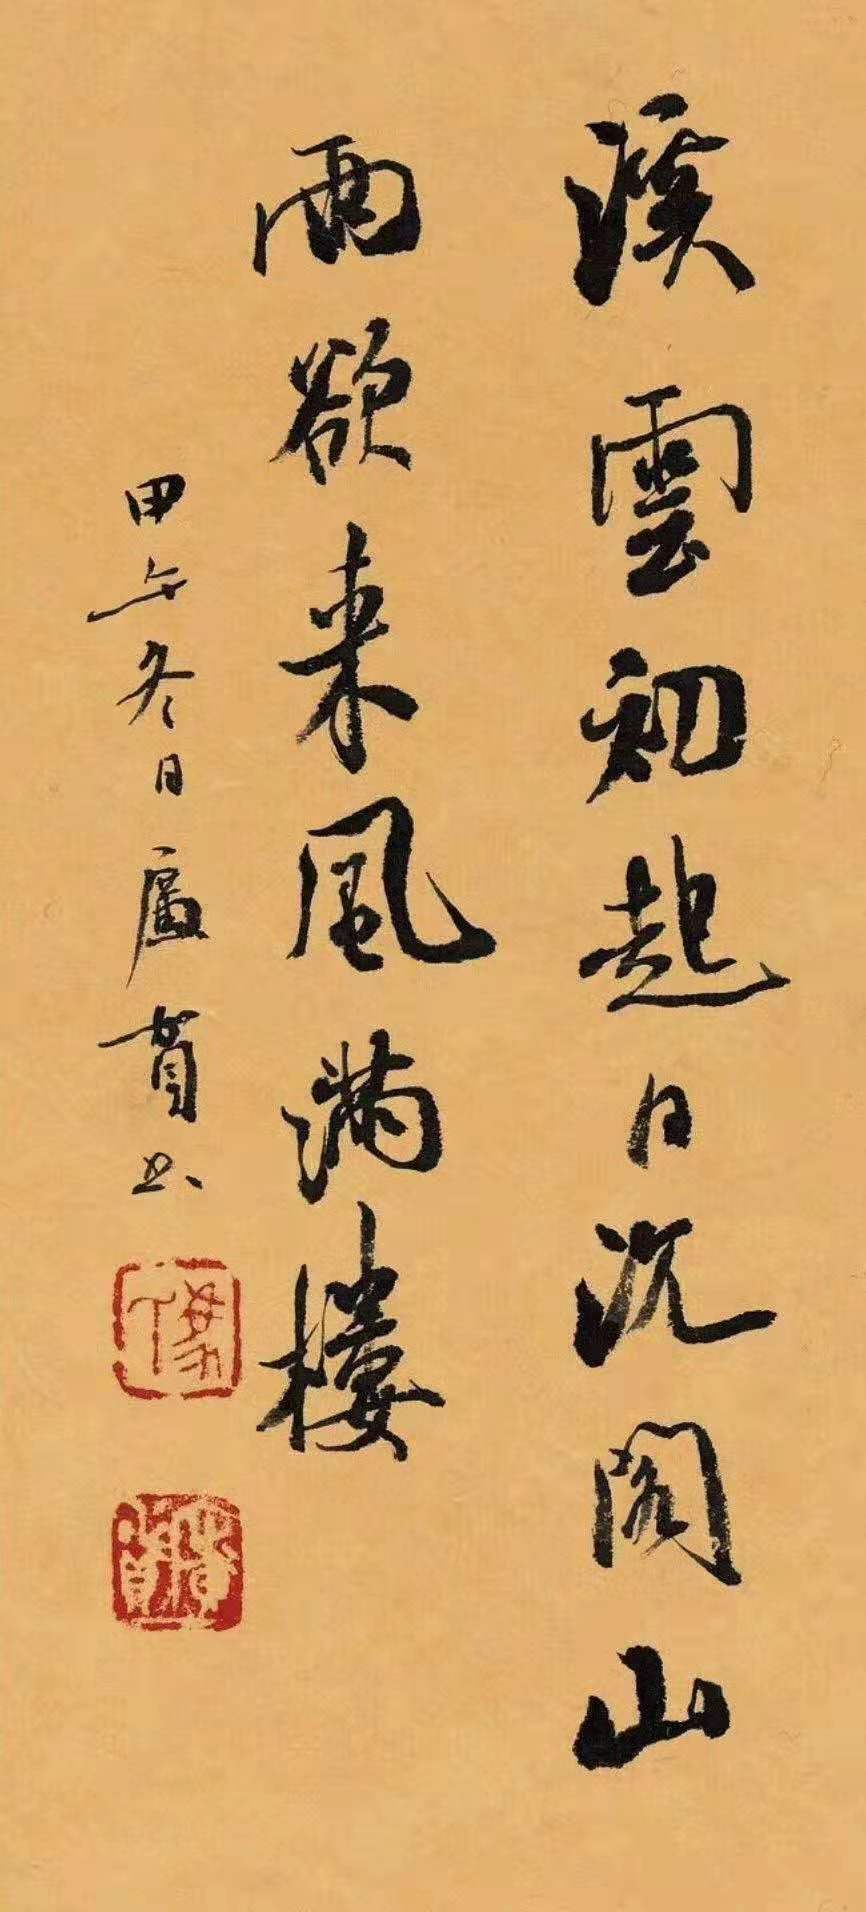 溪雲初起日沉閣山
雨欲来風滿樓
甲午冬日廬賁书